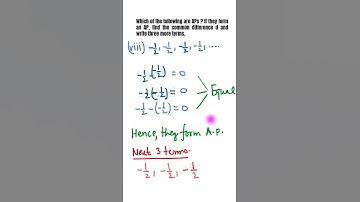 Which of the following are APs ? If they form
an AP, find the common difference d and
write three more terms.
(viii) -1/2, -1/2, -1/2, -1/2, ....
-1/2 - (-1/2) = 0
-1/2 - (-1/2) = 0
-1/2 - (-1/2) = 0
Equal
Hence, they form A.P.
Next 3 terms.
-1/2, -1/2, -1/2